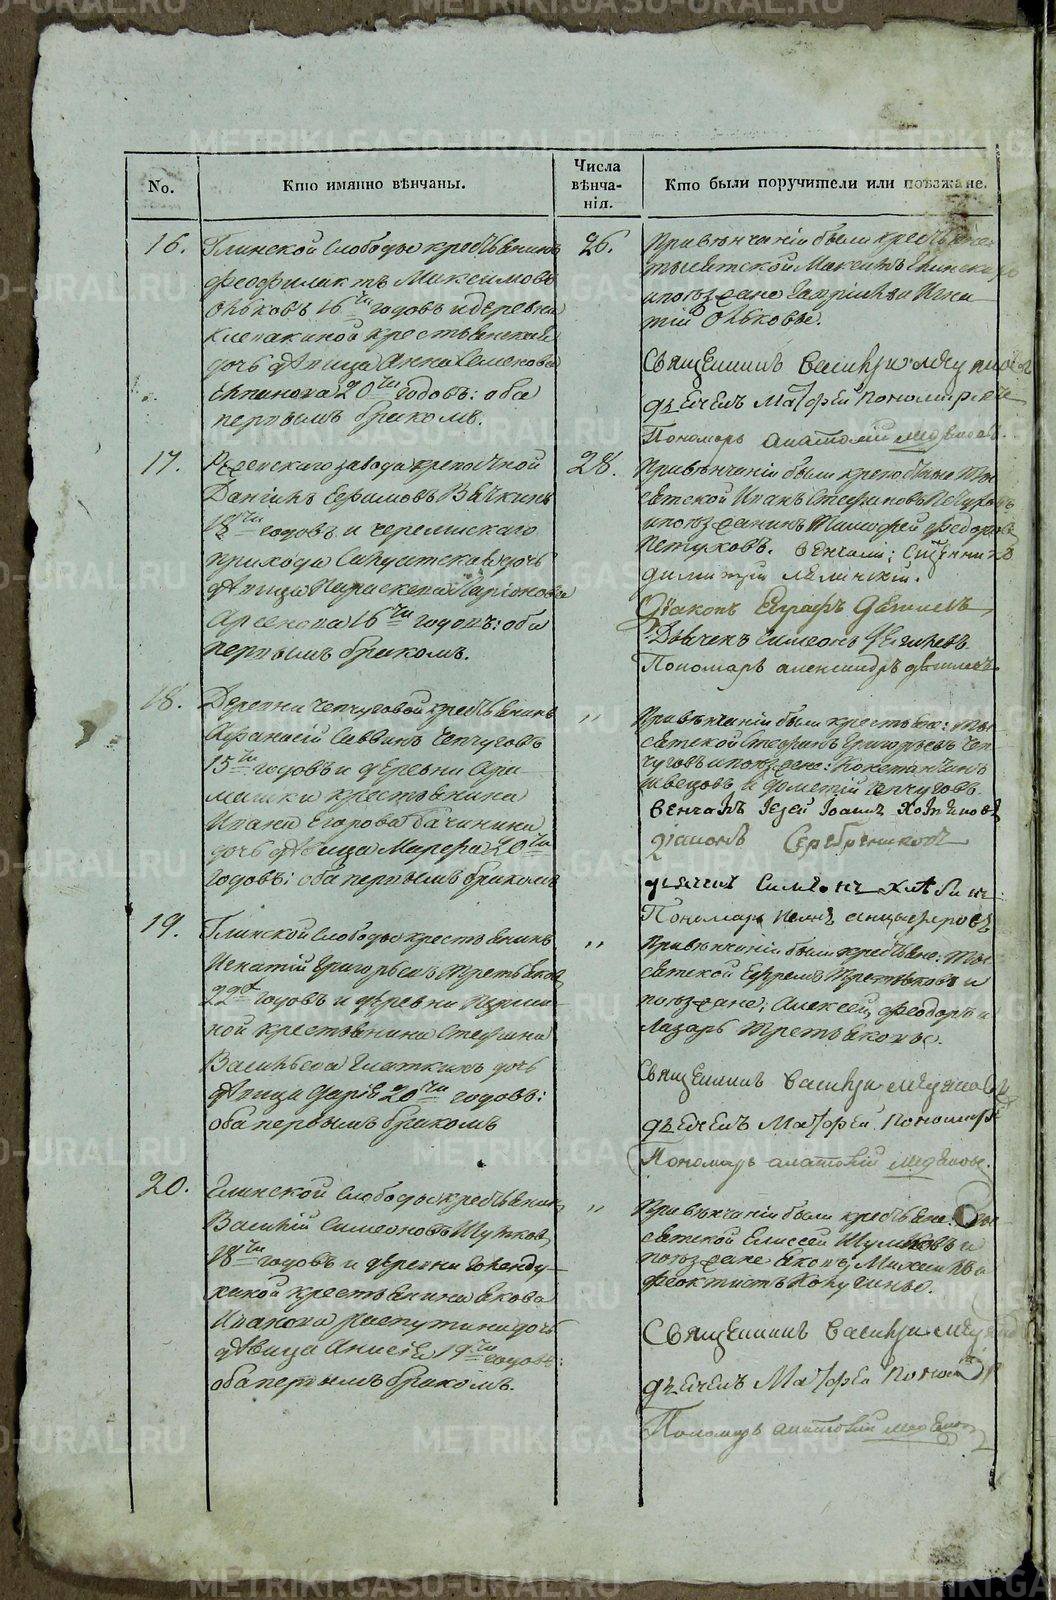 No.
Кто имянно вѣнчаны.
Числа
вѣнча-
нія.
Кто были поручители или поѣзжане.
16.
Глинской Слободы крестьянинъ
Феофилактъ Максимовъ
Ольковъ 16ти годовъ и деревни
Клевакиной крестьянская
дочь дѣвица Анна Семенова
20ти годовъ: оба
первымъ бракомъ.
26.
При вѣнчаніи были крестьяне
тысятской Максимъ
и поѣзжане Гавріилъ и Игна
тій Ольковы.
Священникъ Василій
дьячекъ Матфей Пономаревъ
Пономарь Анатолій Медвѣдевъ.
17.
Режевскаго завода крепостной
Даніилъ Ефимовъ
18ти годовъ и Черемискаго
прихода дочь
дѣвица Параскева Ларіонова
Арсенова 16ти годовъ: оба
первымъ бракомъ.
28.
При вѣнчаніи были крепостные ты
сятской Иванъ Стефановъ
и поѣзжанинъ Тимофей Федоровъ
Петуховъ. венчали: Священникъ
Димитрій
Діаконъ Евграфъ
Дьячекъ Симеонъ
Пономарь Александръ
18.
Деревни Чепчуговой крестьянинъ
Афанасій Саввинъ Чепчуговъ
15ти годовъ и деревни Ара
машки крестьянина
Ивана Егорова Бачинина
дочь дѣвица Марфа 20ти
годовъ: оба первымъ бракомъ
"
При вѣнчаніи были крестьяне: ты
сятской Стефанъ Григорьевъ Чеп
чуговъ и поѣзжане: Константинъ
Швецовъ и Дометій Чепчуговъ.
венчалъ Іерей Іоаннъ
Діаконъ Серебренниковъ
дьячекъ Симеонъ
Пономарь
19.
Глинской Слободы крестьянинъ
Игнатій Григорьевъ Третьяковъ
22 годовъ и деревни Першин
ной крестьянина Стефана
Васильева Глаткихъ дочь
дѣвица Дарія 20ти годовъ:
оба первымъ бракомъ
"
При вѣнчаніи были крестьяне: ты
сятской Ефремъ Третьяковъ и
поѣзжане; Алексей, Феодоръ и
Лазарь Третьяковы.
Священникъ Василій
дьячекъ Матфей Пономаревъ
Пономарь Анатолій Медвѣдевъ.
20.
Глинской Слободы крестьянинъ
Василій Симеоновъ
18ти годовъ и деревни Голенду
хиной крестьянина Якова
Иванова Распутина дочь
дѣвица Анисія 19ти годовъ:
оба первымъ бракомъ.
"
При вѣнчаніи были крестьяне: ты
сятской Елисей
поѣзжане Яковъ, Михаилъ и
Феоктистъ
Священникъ Василій
дьячекъ Матфей Пономаревъ
Пономарь Анатолій Медвѣдевъ
METRIKI.GASO-URAL.RU